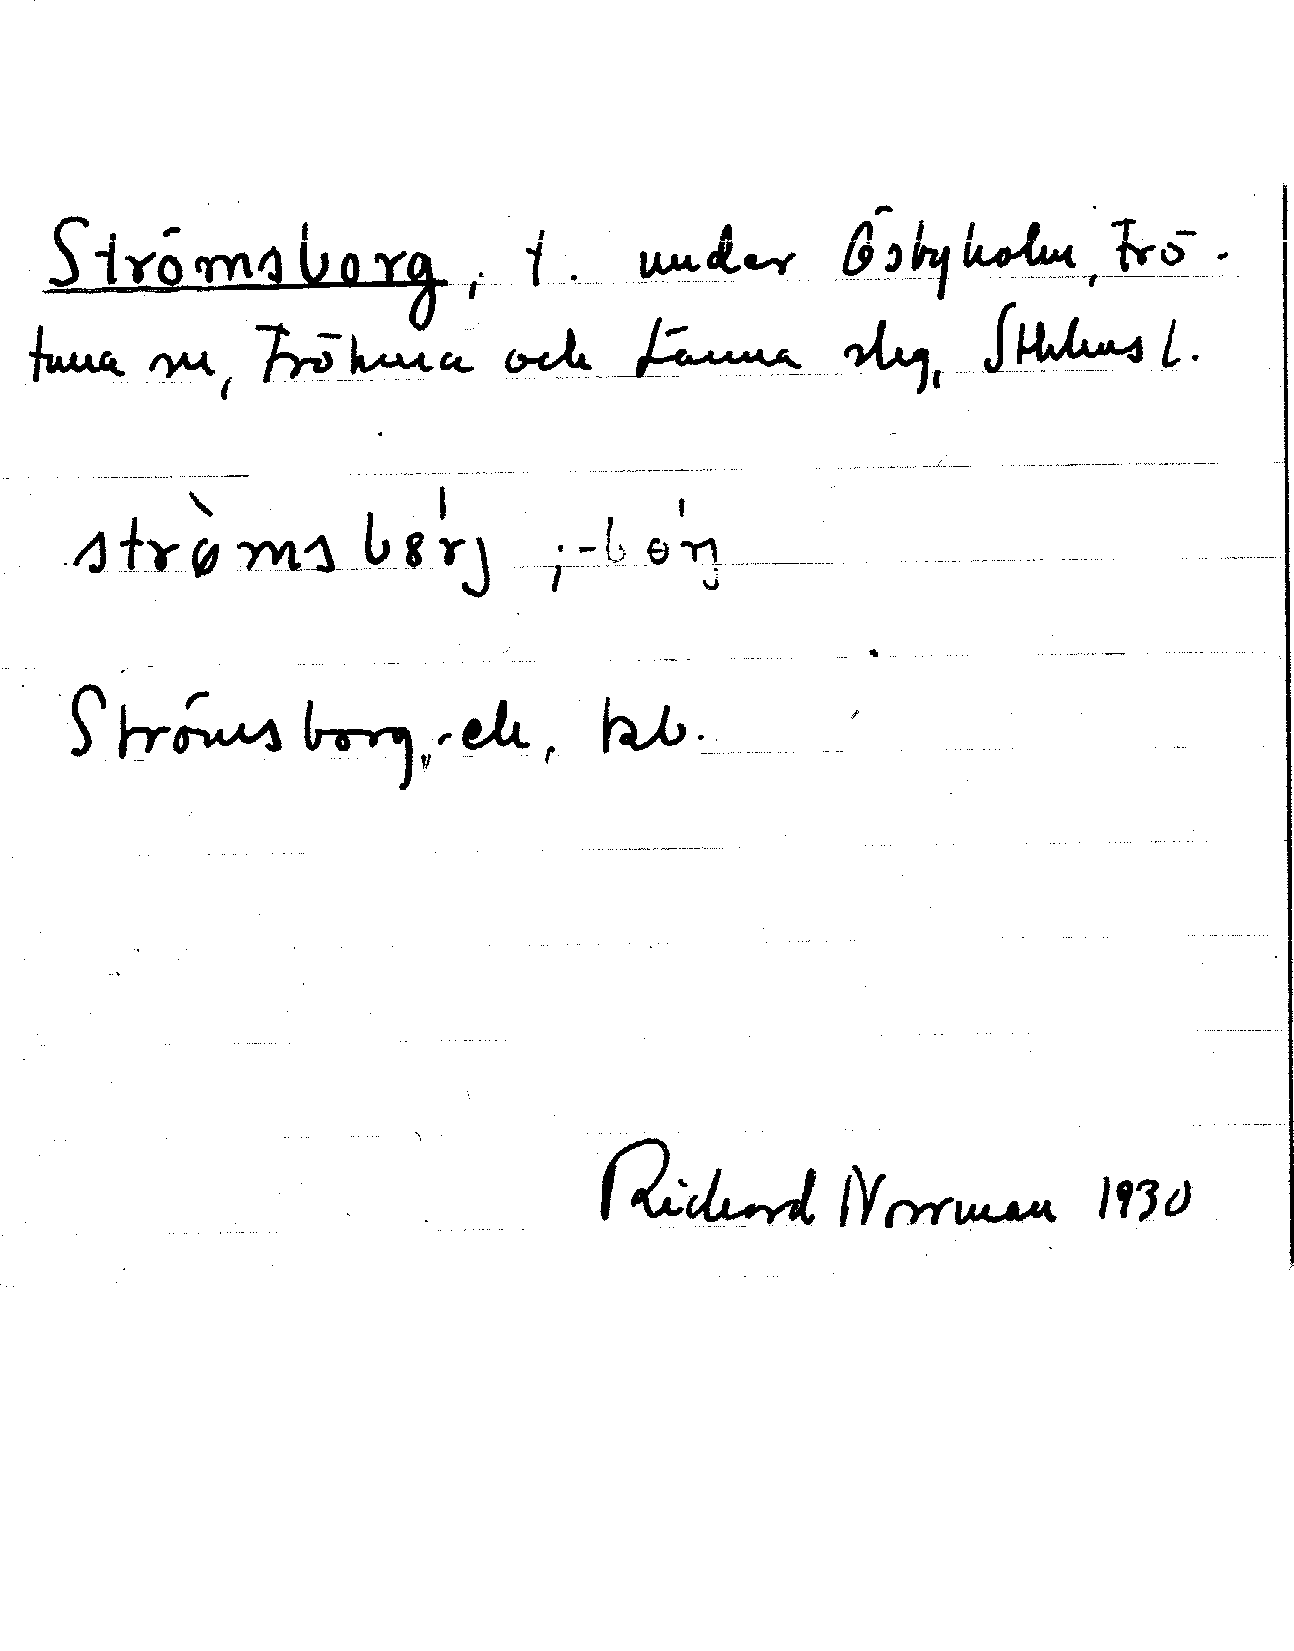 Strömsborg, t. under Ösbyholm, Frö-
tuna sn, Frötuna och Länna slg, Sthlms l.
strø̀msbɵrj, -bɵrj
Strömsborg, -ek, kb.
Richard Norrman 1930